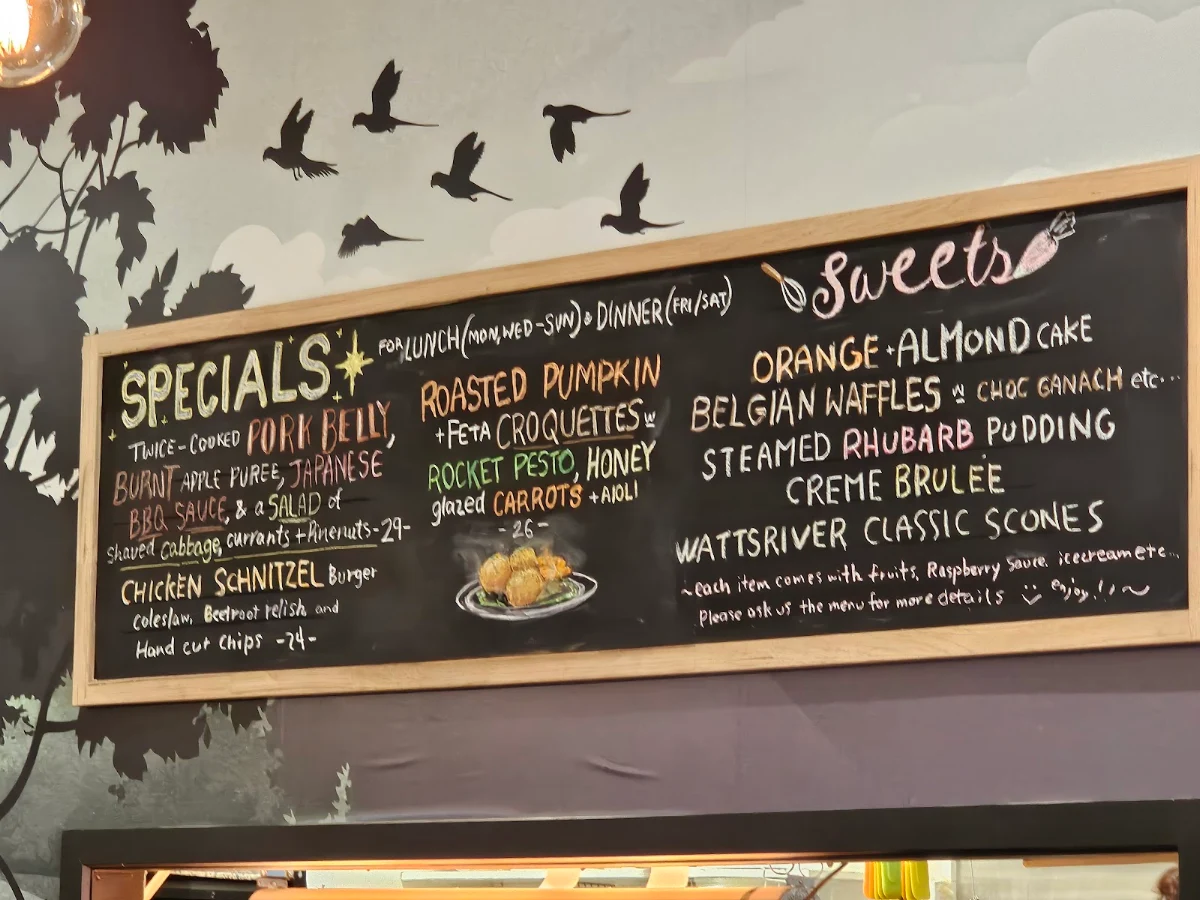 SPECIALS
FOR LUNCH (MON, WED-SUN) & DINNER (FRI/SAT)
TWICE-COOKED PORK BELLY,
BURNT APPLE PUREE, JAPANESE
BBQ SAUCE, & a SALAD of
Shaved cabbage, currants + Pinenuts -29-
CHICKEN SCHNITZEL Burger
coleslaw, Beetroot relish and
Hand cut chips -24-
ROASTED PUMPKIN
+ FETA CROQUETTES w
ROCKET PESTO, HONEY
glazed CARROTS + AIOLI
-26-
Sweets
ORANGE + ALMOND CAKE
BELGIAN WAFFLES w CHOC GANACH etc...
STEAMED RHUBARB PUDDING
CREME BRULEE
WATTSRIVER CLASSIC SCONES
~each item comes with fruits, Raspberry Sauce, icecream etc...
Please ask us the menu for more details enjoy!! ~